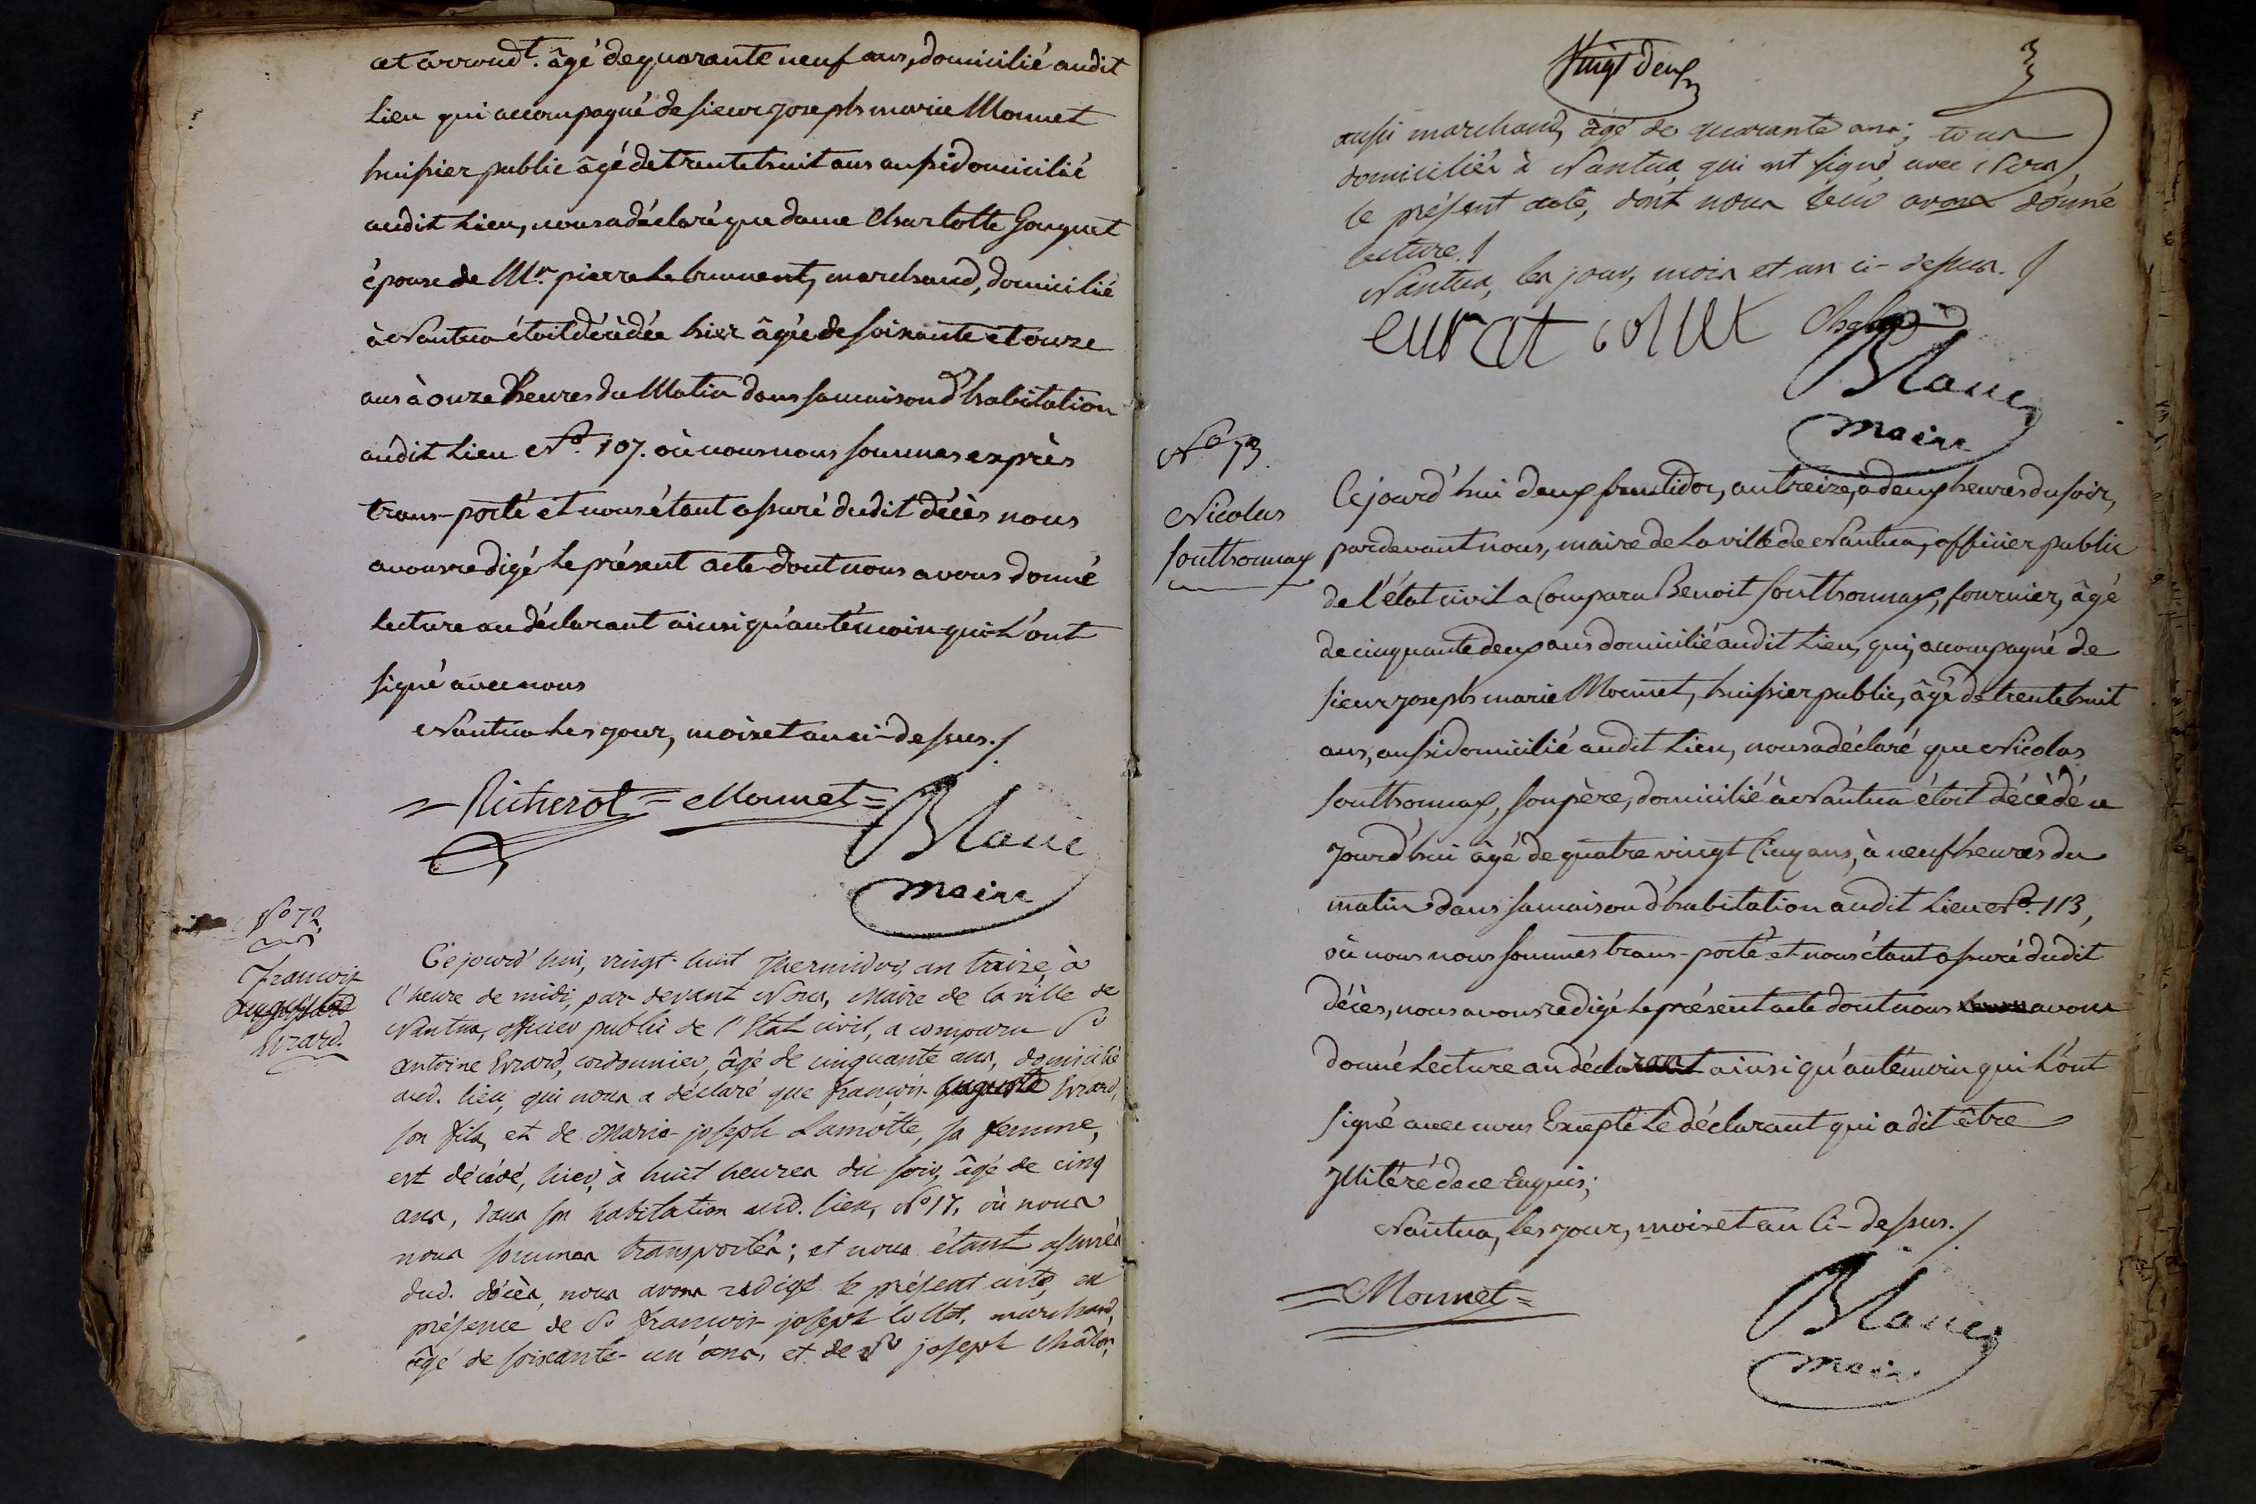 et arrond.t âgé de quarante neuf ans, domicilié audit
lieu qui accompagné de sieur joseph marie Monnet
huissier public âgé de trente huit ans aussi domicilié
audit lieu, nous a déclaré que dame Charlotte Gouguet
épouse de Mr. pierre Lebrument, marchand, domicilié
à Nantua étoit décédée hier âgée de soixante et onze
ans à onze heures du Matin dans sa maison d'habitation
audit lieu No. 107. où nous nous sommes exprès
trans-porté et nous étant assuré dudit décès nous
avons redigé le présent acte dont nous avons donné
lecture au déclarant ainsi qu'au témoin qui l'ont
signé avec nous
Nantua les jour, mois et an ci-dessus./
= Richerot = Monnet =
Blanc
maire
No 72
francois
Evrard.
Cejourd'hui, vingt-huit Thermidor, an treize, à
l'heure de midi, par devant Nous, Maire de la ville de
Nantua, officier public de l'Etat civil, a comparu Sr
antoine Evrard, cordonnier, âgé de cinquante ans, domicilié
aud. lieu, qui nous a déclaré que françois auguste Evrard,
son fils, et de Marie-joseph Lamotte, sa femme,
est décédé, hier, à huit heures du soir, âgé de cinq
ans, dans son habitation aud. lieu, No 17, où nous
nous sommes transportés; et nous étant assurés
dud. décès, nous avons redigé le présent acte, en
présence de Sr francois joseph Collet, marchand,
âgé de soixante-un ans, et de Sr joseph Châlon,
Vingt deux
aussi marchand, âgé de quarante ans; tous
domiciliés à Nantua, qui ont signé, avec Nous,
le présent acte, dont nous leur avons donné
lecture./
Nantua, les jour, mois et an ci-dessus./
evrat collet
Blanc
maire
No 73.
Nicolas
Southonnax
Cejourd'hui deux fructidor, an treize, à deux heures du soir,
pardevant nous, maire de la ville de Nantua, officier public
de l'état civil a Comparu Benoit Southonnax, fournier, âgé
de cinquante deux ans domicilié audit lieu, qui, accompagné de
sieur joseph marie Monnet, huissier public, âgé de trente huit
ans, aussi domicilié audit lieu, nous a déclaré que Nicolas
Southonnax, son père, domicilié à Nantua étoit décédé ce
jourd'hui âgé de quatre vingt Cinq ans, à neuf heures du
matin dans sa maison d'habitation audit lieu No. 113,
où nous nous sommes trans-porté et nous étant assuré dudit
décès, nous avons redigé le présent acte dont nous avons
donné lecture au déclarant ainsi qu'au témoin qui l'ont
signé avec nous Excepté le déclarant qui a dit être
Illitéré de ce Enquis;
Nantua, les jour, mois et an Ci-dessus./
= Monnet =
Blanc
maire